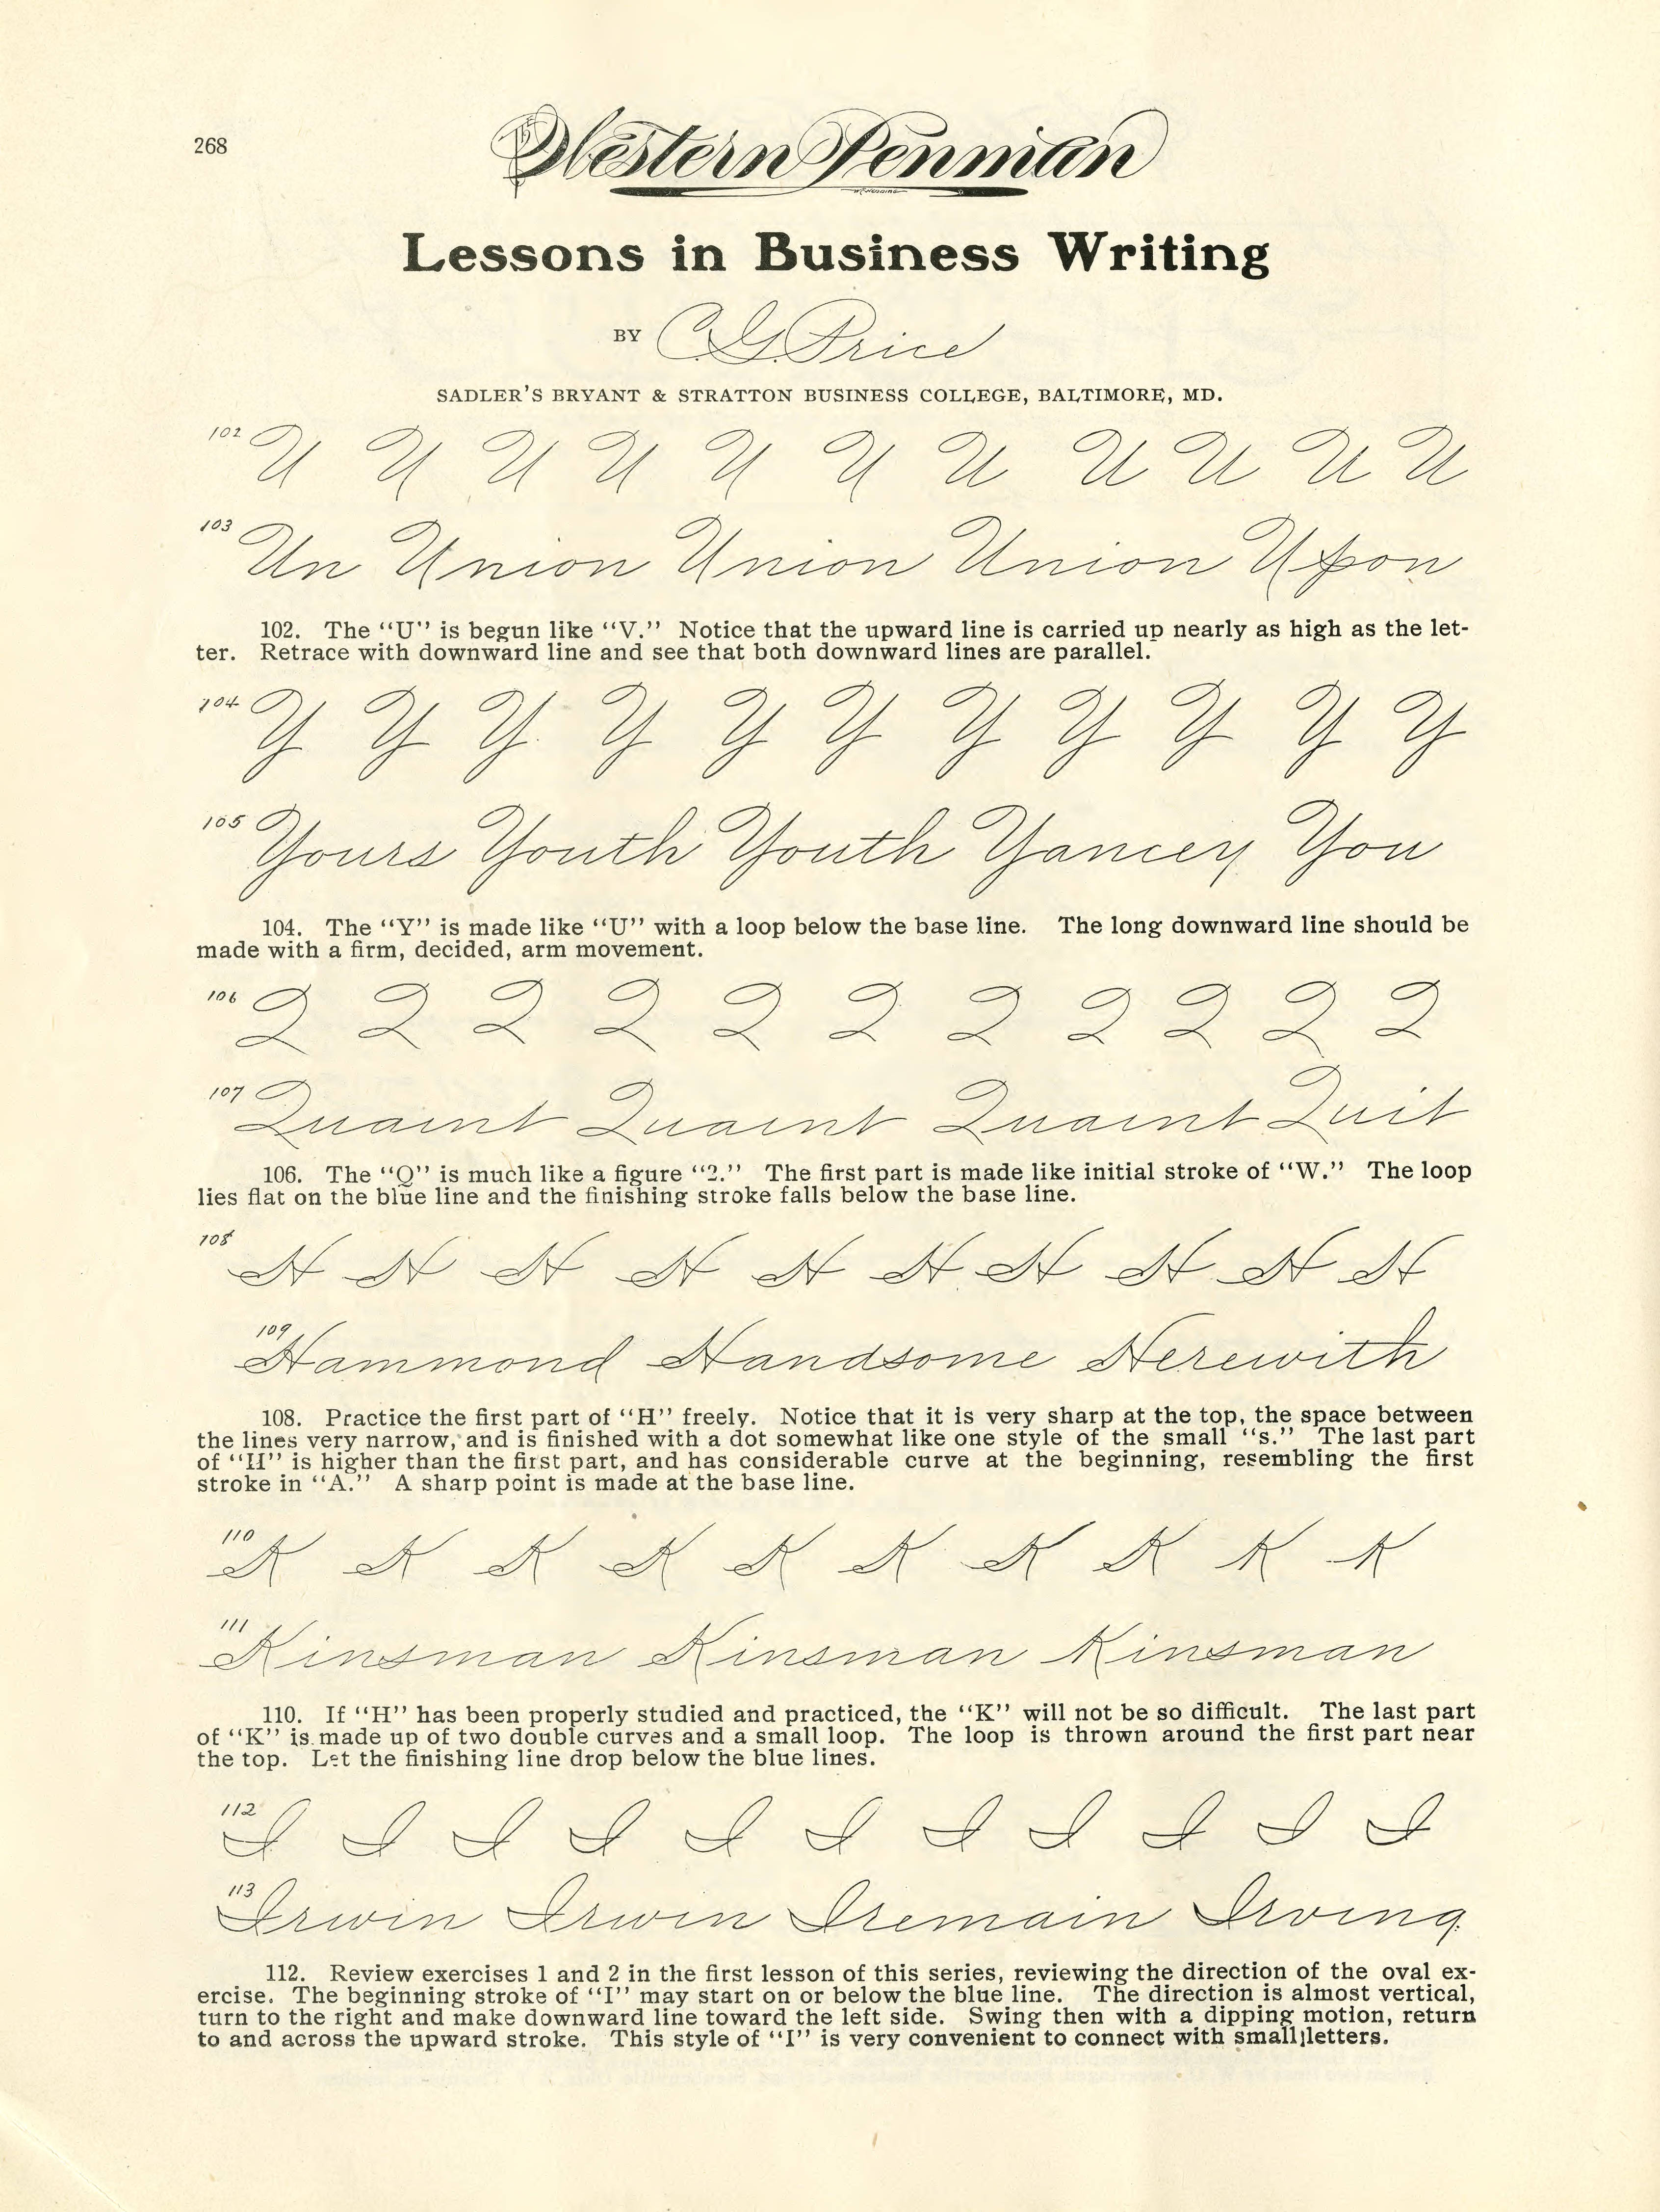 268
Western Penman
Lessons in Business Writing
BY C. G. Price
SADLER'S BRYANT & STRATTON BUSINESS COLLEGE, BALTIMORE, MD.
102 U U U U U U U U U U U
103 Un Union Union Union Upon
102. The “U” is begun like “V.” Notice that the upward line is carried up nearly as high as the let-
ter. Retrace with downward line and see that both downward lines are parallel.
104 Y Y Y Y Y Y Y Y Y Y Y
105 Yours Youth Youth Yancey You
104. The “Y” is made like “U” with a loop below the base line. The long downward line should be
made with a firm, decided, arm movement.
106 Q Q Q Q Q Q Q Q Q Q Q
107 Quaint Quaint Quaint Quit
106. The “Q” is much like a figure “2.” The first part is made like initial stroke of “W.” The loop
lies flat on the blue line and the finishing stroke falls below the base line.
108 H H H H H H H H H H
109 Hammond Handsome Herewith
108. Practice the first part of “H” freely. Notice that it is very sharp at the top, the space between
the lines very narrow, and is finished with a dot somewhat like one style of the small “s.” The last part
of “H” is higher than the first part, and has considerable curve at the beginning, resembling the first
stroke in “A.” A sharp point is made at the base line.
110 K K K K K K K K K K
111 Kinsman Kinsman Kinsman
110. If “H” has been properly studied and practiced, the “K” will not be so difficult. The last part
of “K” is made up of two double curves and a small loop. The loop is thrown around the first part near
the top. Let the finishing line drop below the blue lines.
112 I I I I I I I I I I I
113 Irwin Irwin Iremain Irving
112. Review exercises 1 and 2 in the first lesson of this series, reviewing the direction of the oval ex-
ercise. The beginning stroke of “I” may start on or below the blue line. The direction is almost vertical,
turn to the right and make downward line toward the left side. Swing then with a dipping motion, return
to and across the upward stroke. This style of “I” is very convenient to connect with small letters.